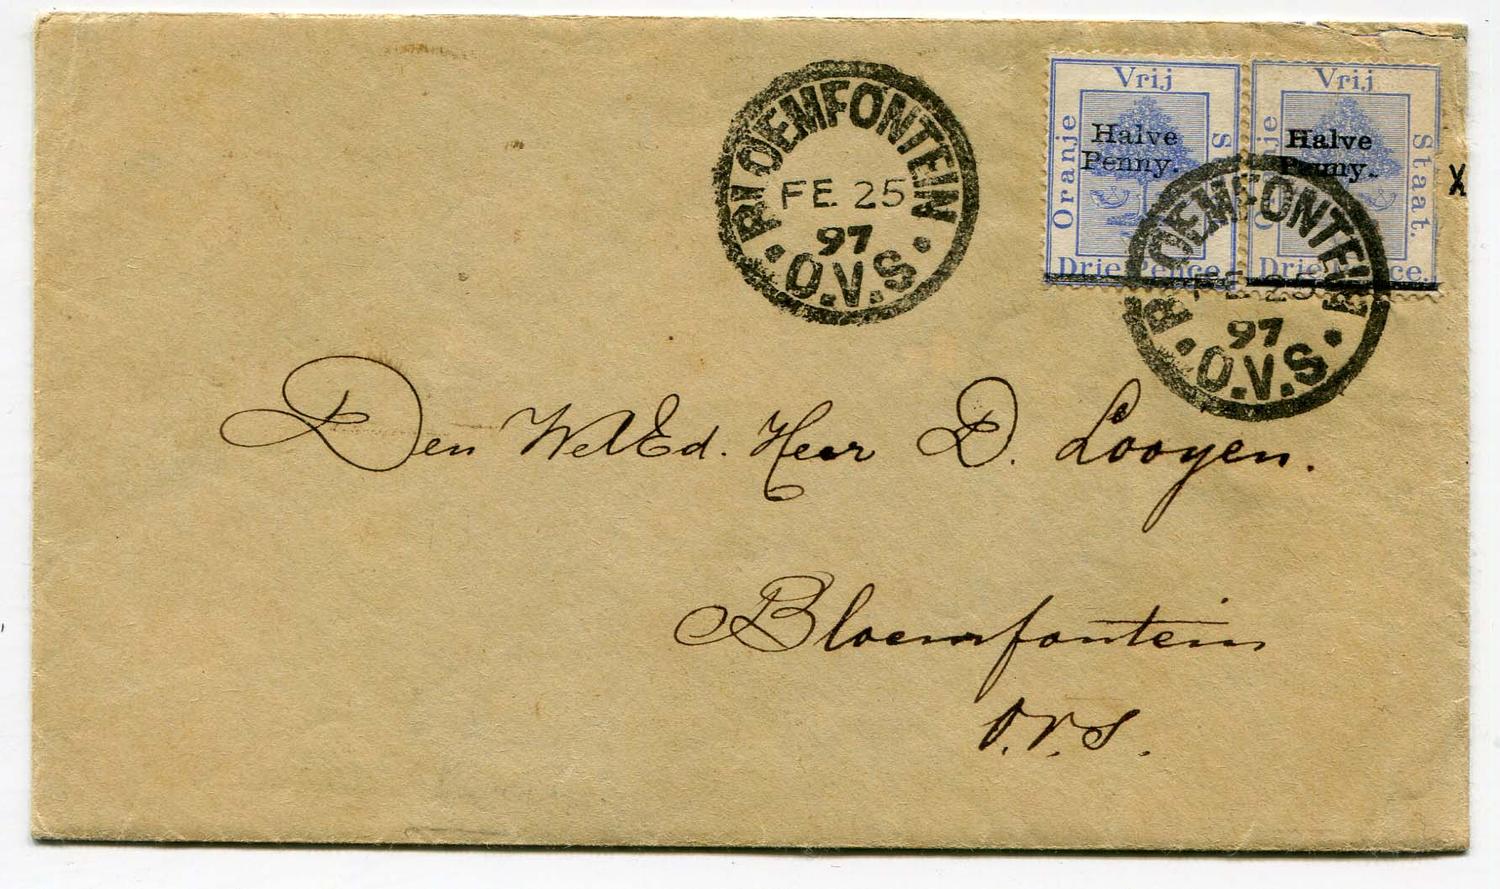 BLOEMFONTEIN
FE 25
97
O.V.S
Oranje Vrij S
Halve
Penny.
Drie Pence
Vrij Staat.
Halve
Penny.
X
BLOEMFONTEIN
FE 25
97
O.V.S
Den WelEd. Heer D. Looyen.
Bloemfontein
O.V.S.